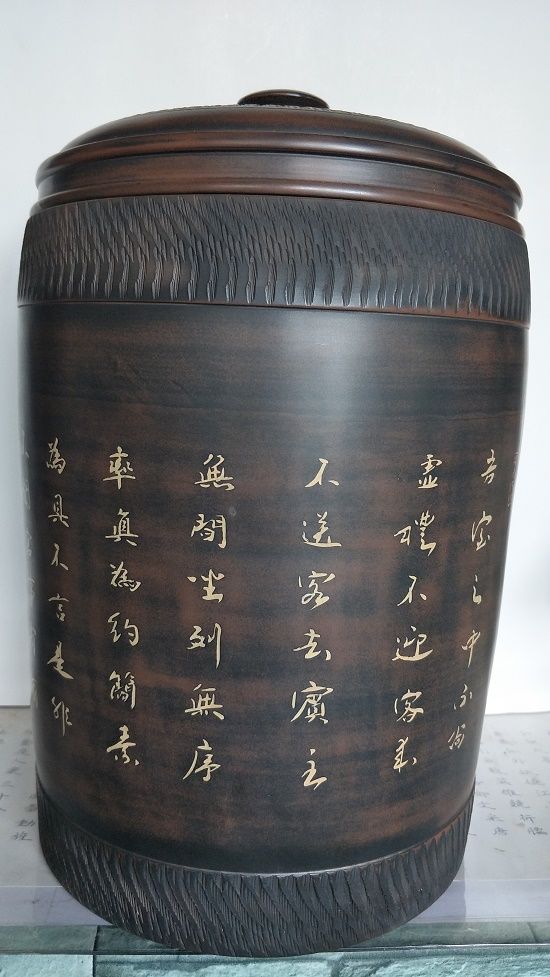 吾室之中不尚
虛禮不迎客來
不送客去賓主
無間坐列無序
率真為約簡素
為具不言是非